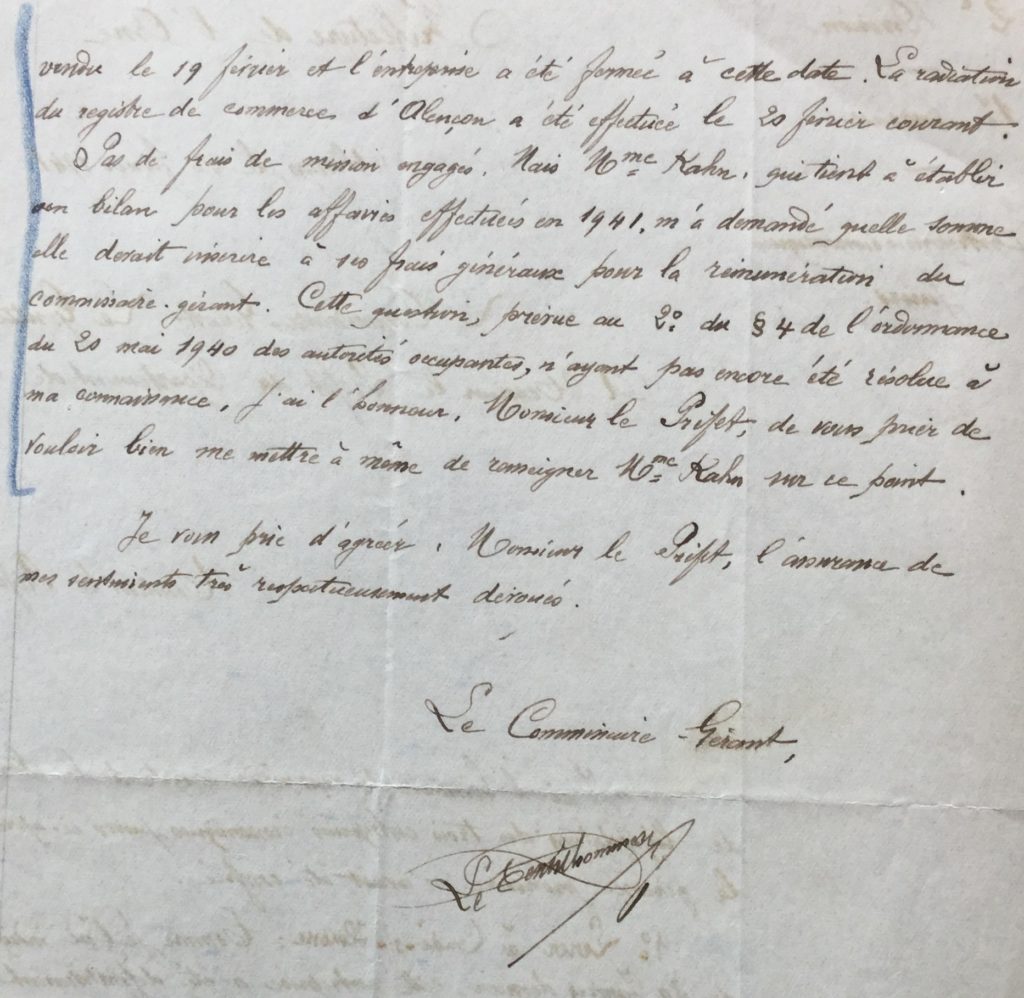 vendu le 19 février et l'entreprise a été fermée à cette date. La radiation
du registre de commerce d'Alençon a été effectuée le 20 février courant.
Pas de frais de mission engagés. Mais Mme Kahn, qui tient à établir
son bilan pour les affaires effectuées en 1941, m'a demandé quelle somme
elle devait inscrire à ses frais généraux pour la rémunération du
commissaire-gérant. Cette question, prévue au 2° du § 4 de l'ordonnance
du 20 mai 1940 des autorités occupantes, n'ayant pas encore été résolue à
ma connaissance, j'ai l'honneur, Monsieur le Préfet, de vous prier de
vouloir bien me mettre à même de renseigner Mme Kahn sur ce point.
Je vous prie d'agréer, Monsieur le Préfet, l'assurance de
mes sentiments très respectueusement dévoués.
Le Commissaire-Gérant,